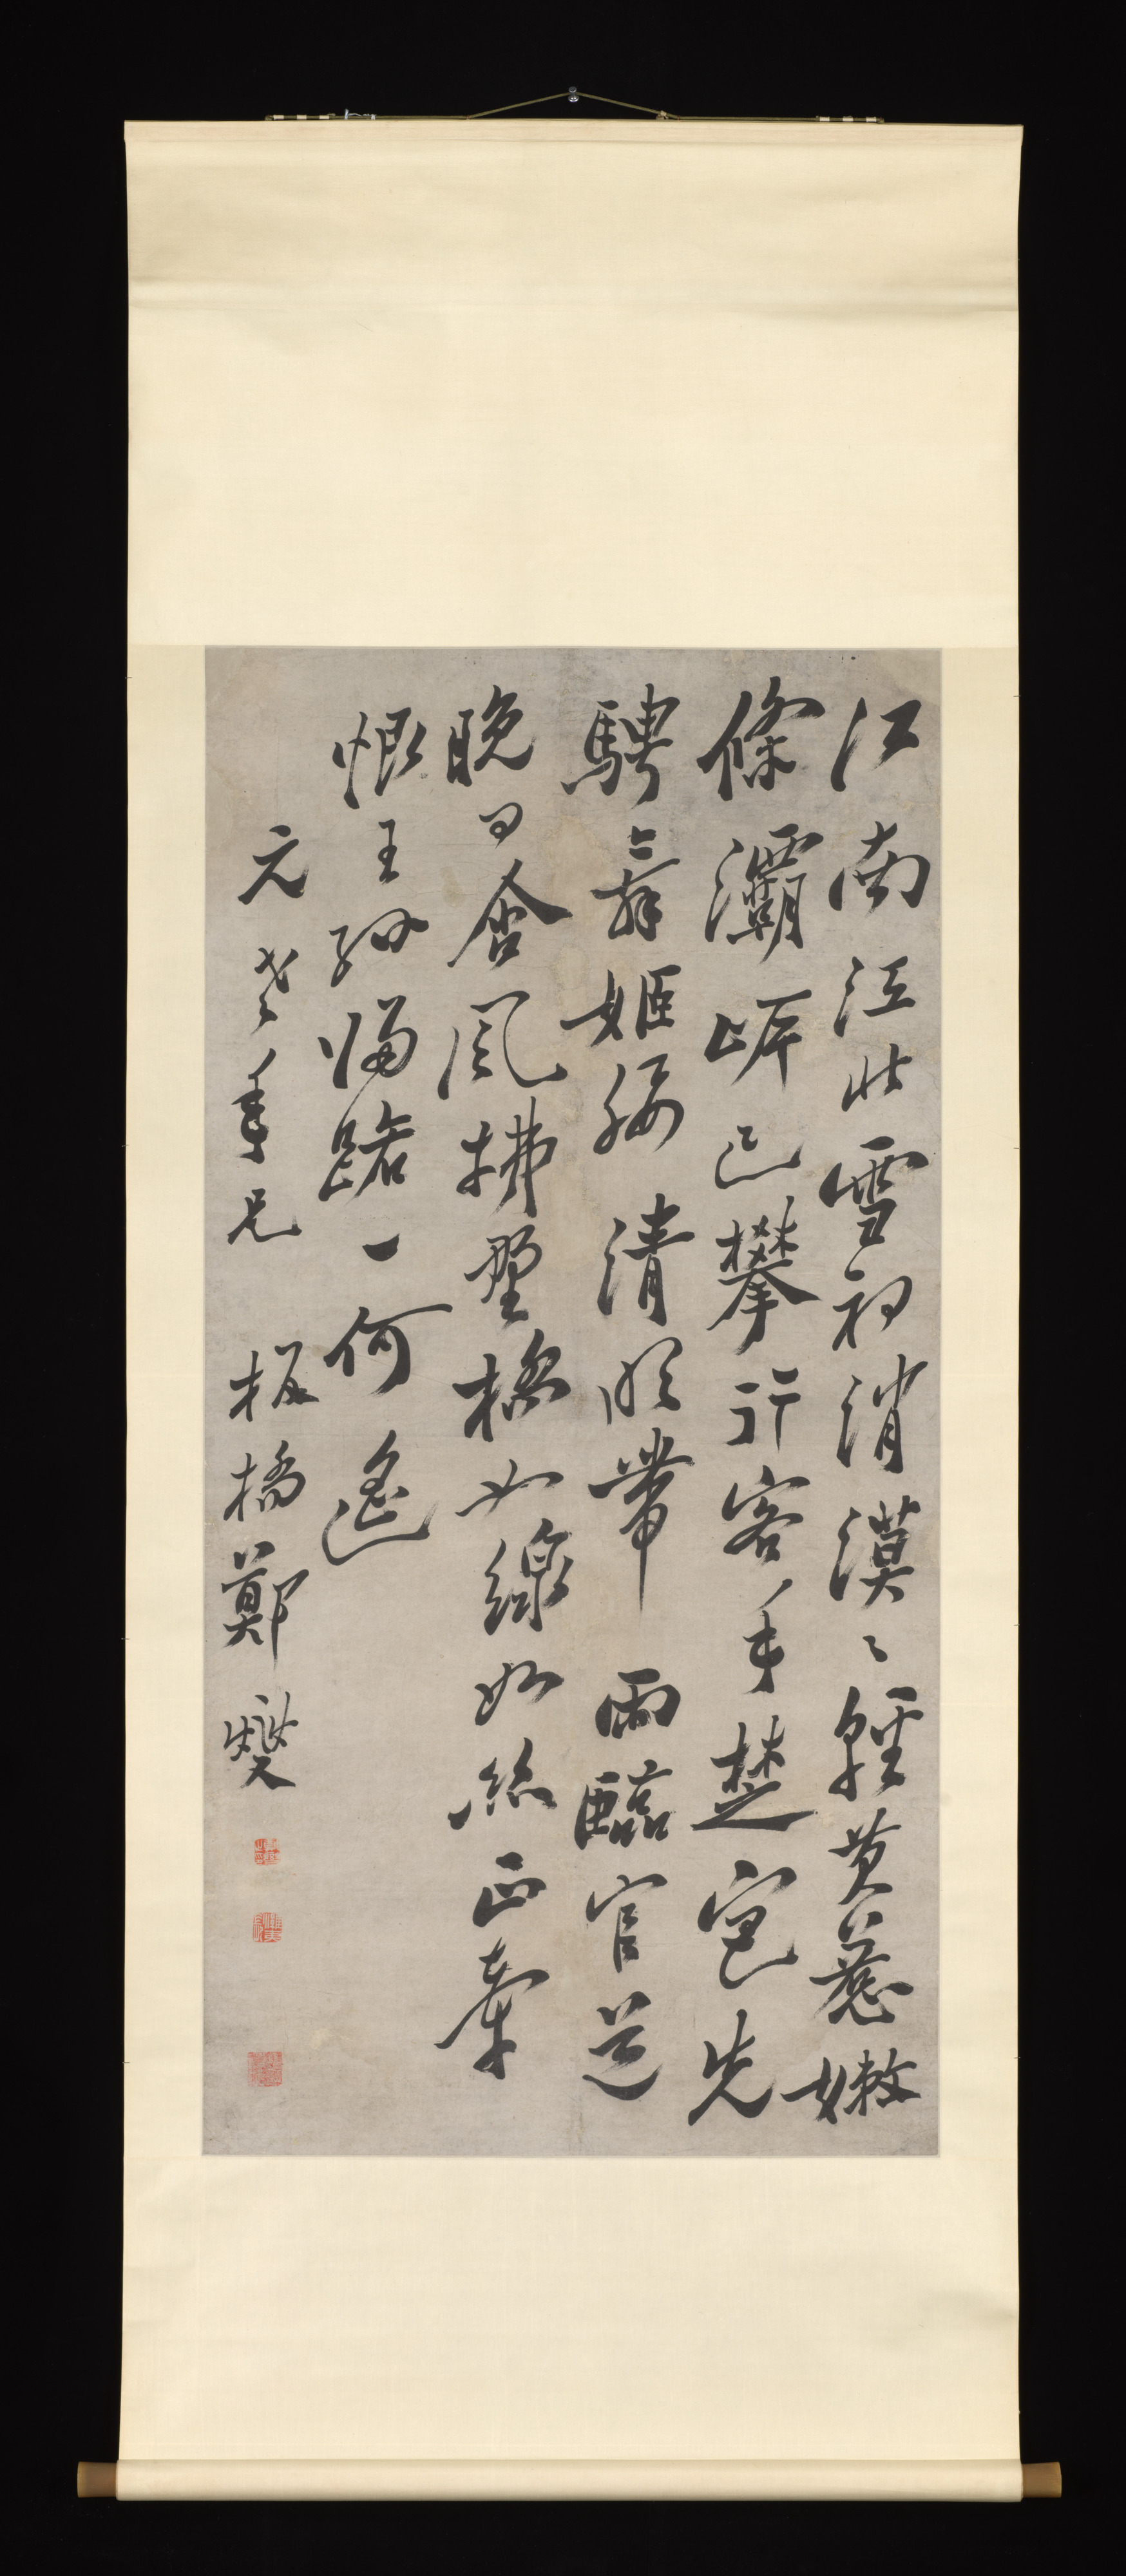 江南江北雪初消漠々輕黃惹嫩
條灞岸已攀行客手楚宮先
騁舞姬腰清明帶雨臨官道
晚日含風拂野橋如線如絲正牽
恨王孫歸路一何遙
元老年兄 板橋鄭燮